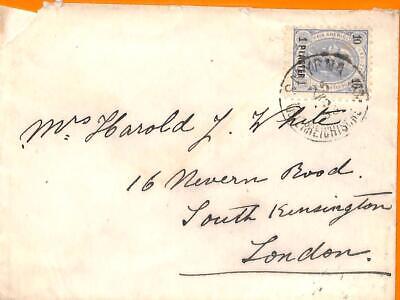 10
1 PIASTER 1
SMYRNA
OESTERREICHISCHE
Mrs Harold J. White
16 Nevern Road
South Kensington
London.